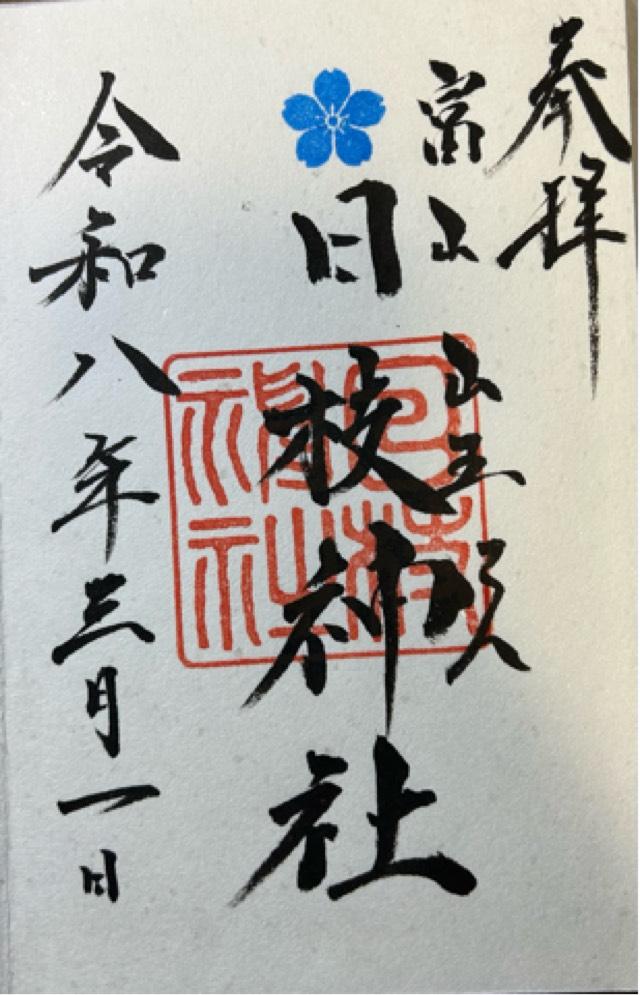 奉拝
富山
山王
日枝神社
日枝神社
令和八年三月一日